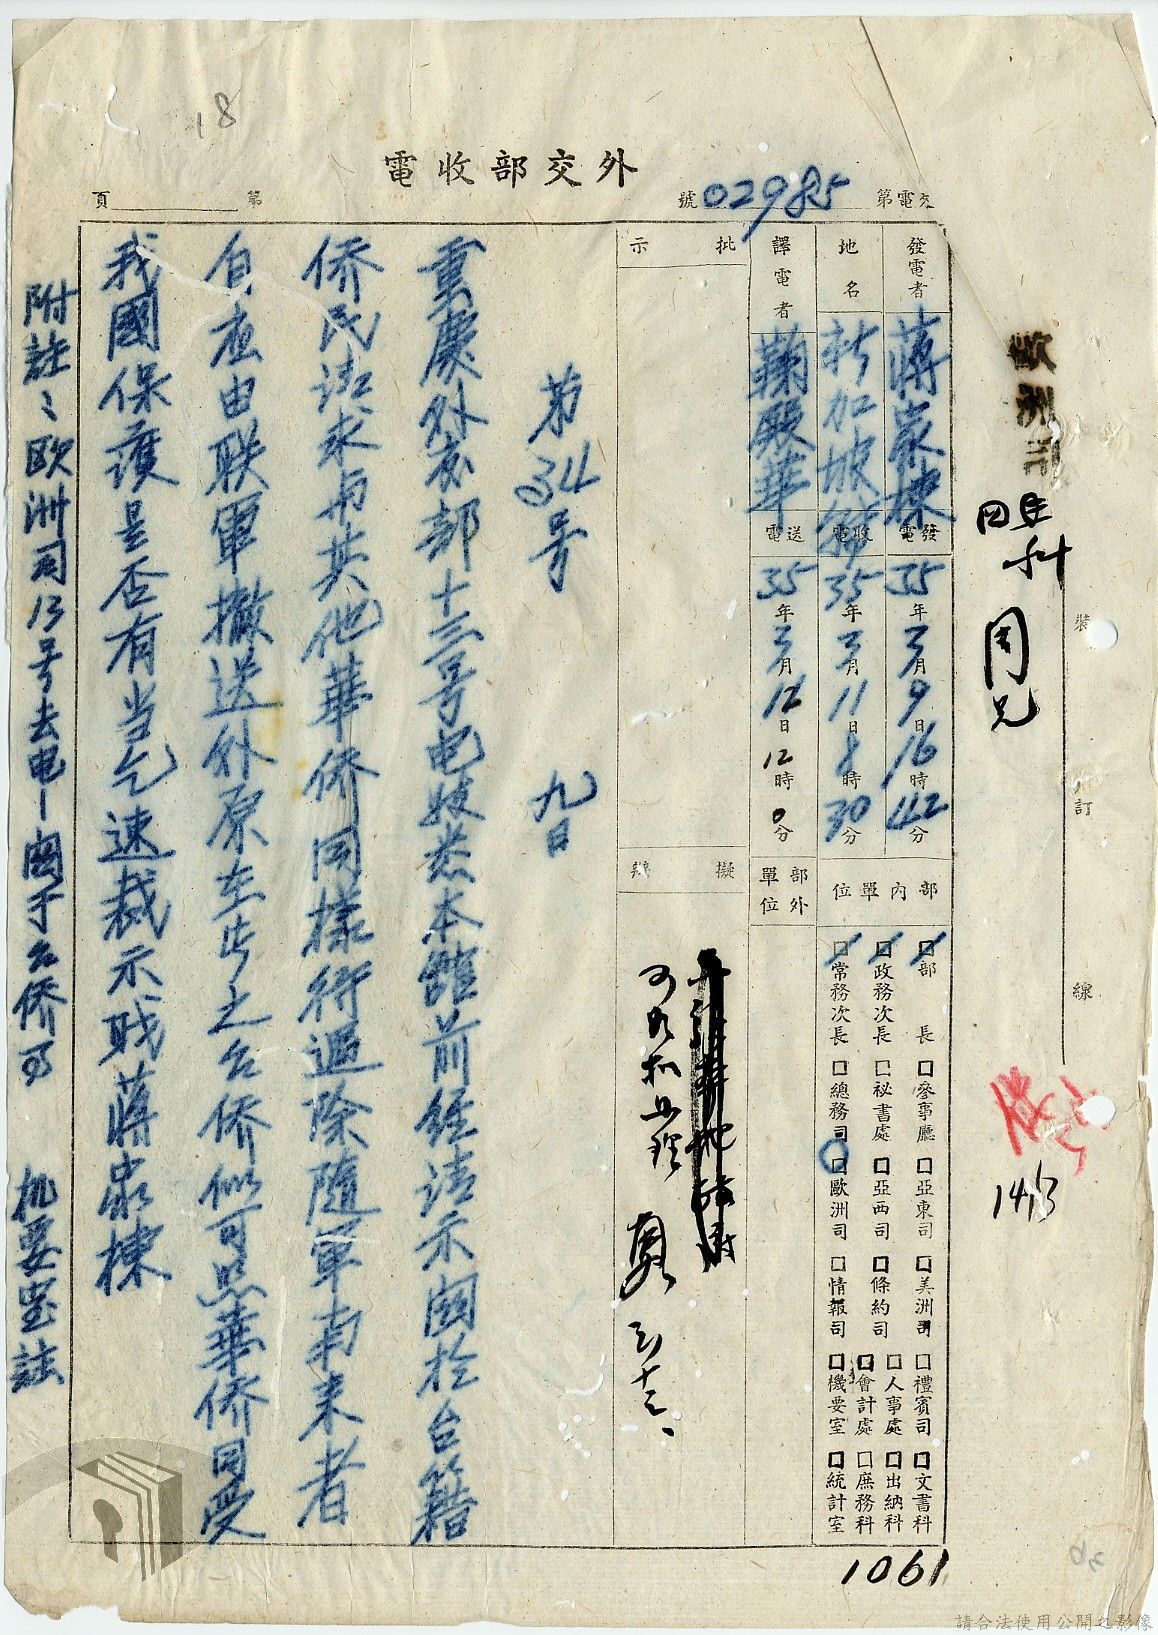 18
外交部收電
交電第02985號
第 頁
歐洲司
四科
周兄
14/3
裝
訂
線
發電者 蔣家棟
地名 新加坡
譯電者 鞠殿華
發電 35年3月9日16時42分
收電 35年3月11日8時30分
送電 35年3月12日12時0分
部內單位
部外單位
□部長 □參事廳 □亞東司 □美洲司 □禮賓司 □文書科
□人事處 □出納科
□政務次長 □祕書處 □亞西司 □條約司 □會計處 □庶務科
□常務次長 □總務司 □歐洲司 □情報司 □機要室 □統計室
批示
擬辦
第34号 九日
重慶外交部十三号电敬悉本館前经请示関於台籍
侨民请求与其他華侨同樣待遇除隨軍南来者
自应由联軍撤送外原在此之台侨似可照華侨同受
我國保護是否有当乞速裁示職蔣家棟
附註：欧洲司13号去电—関于台侨事 机要室註
1061
36
請合法使用公開之影像